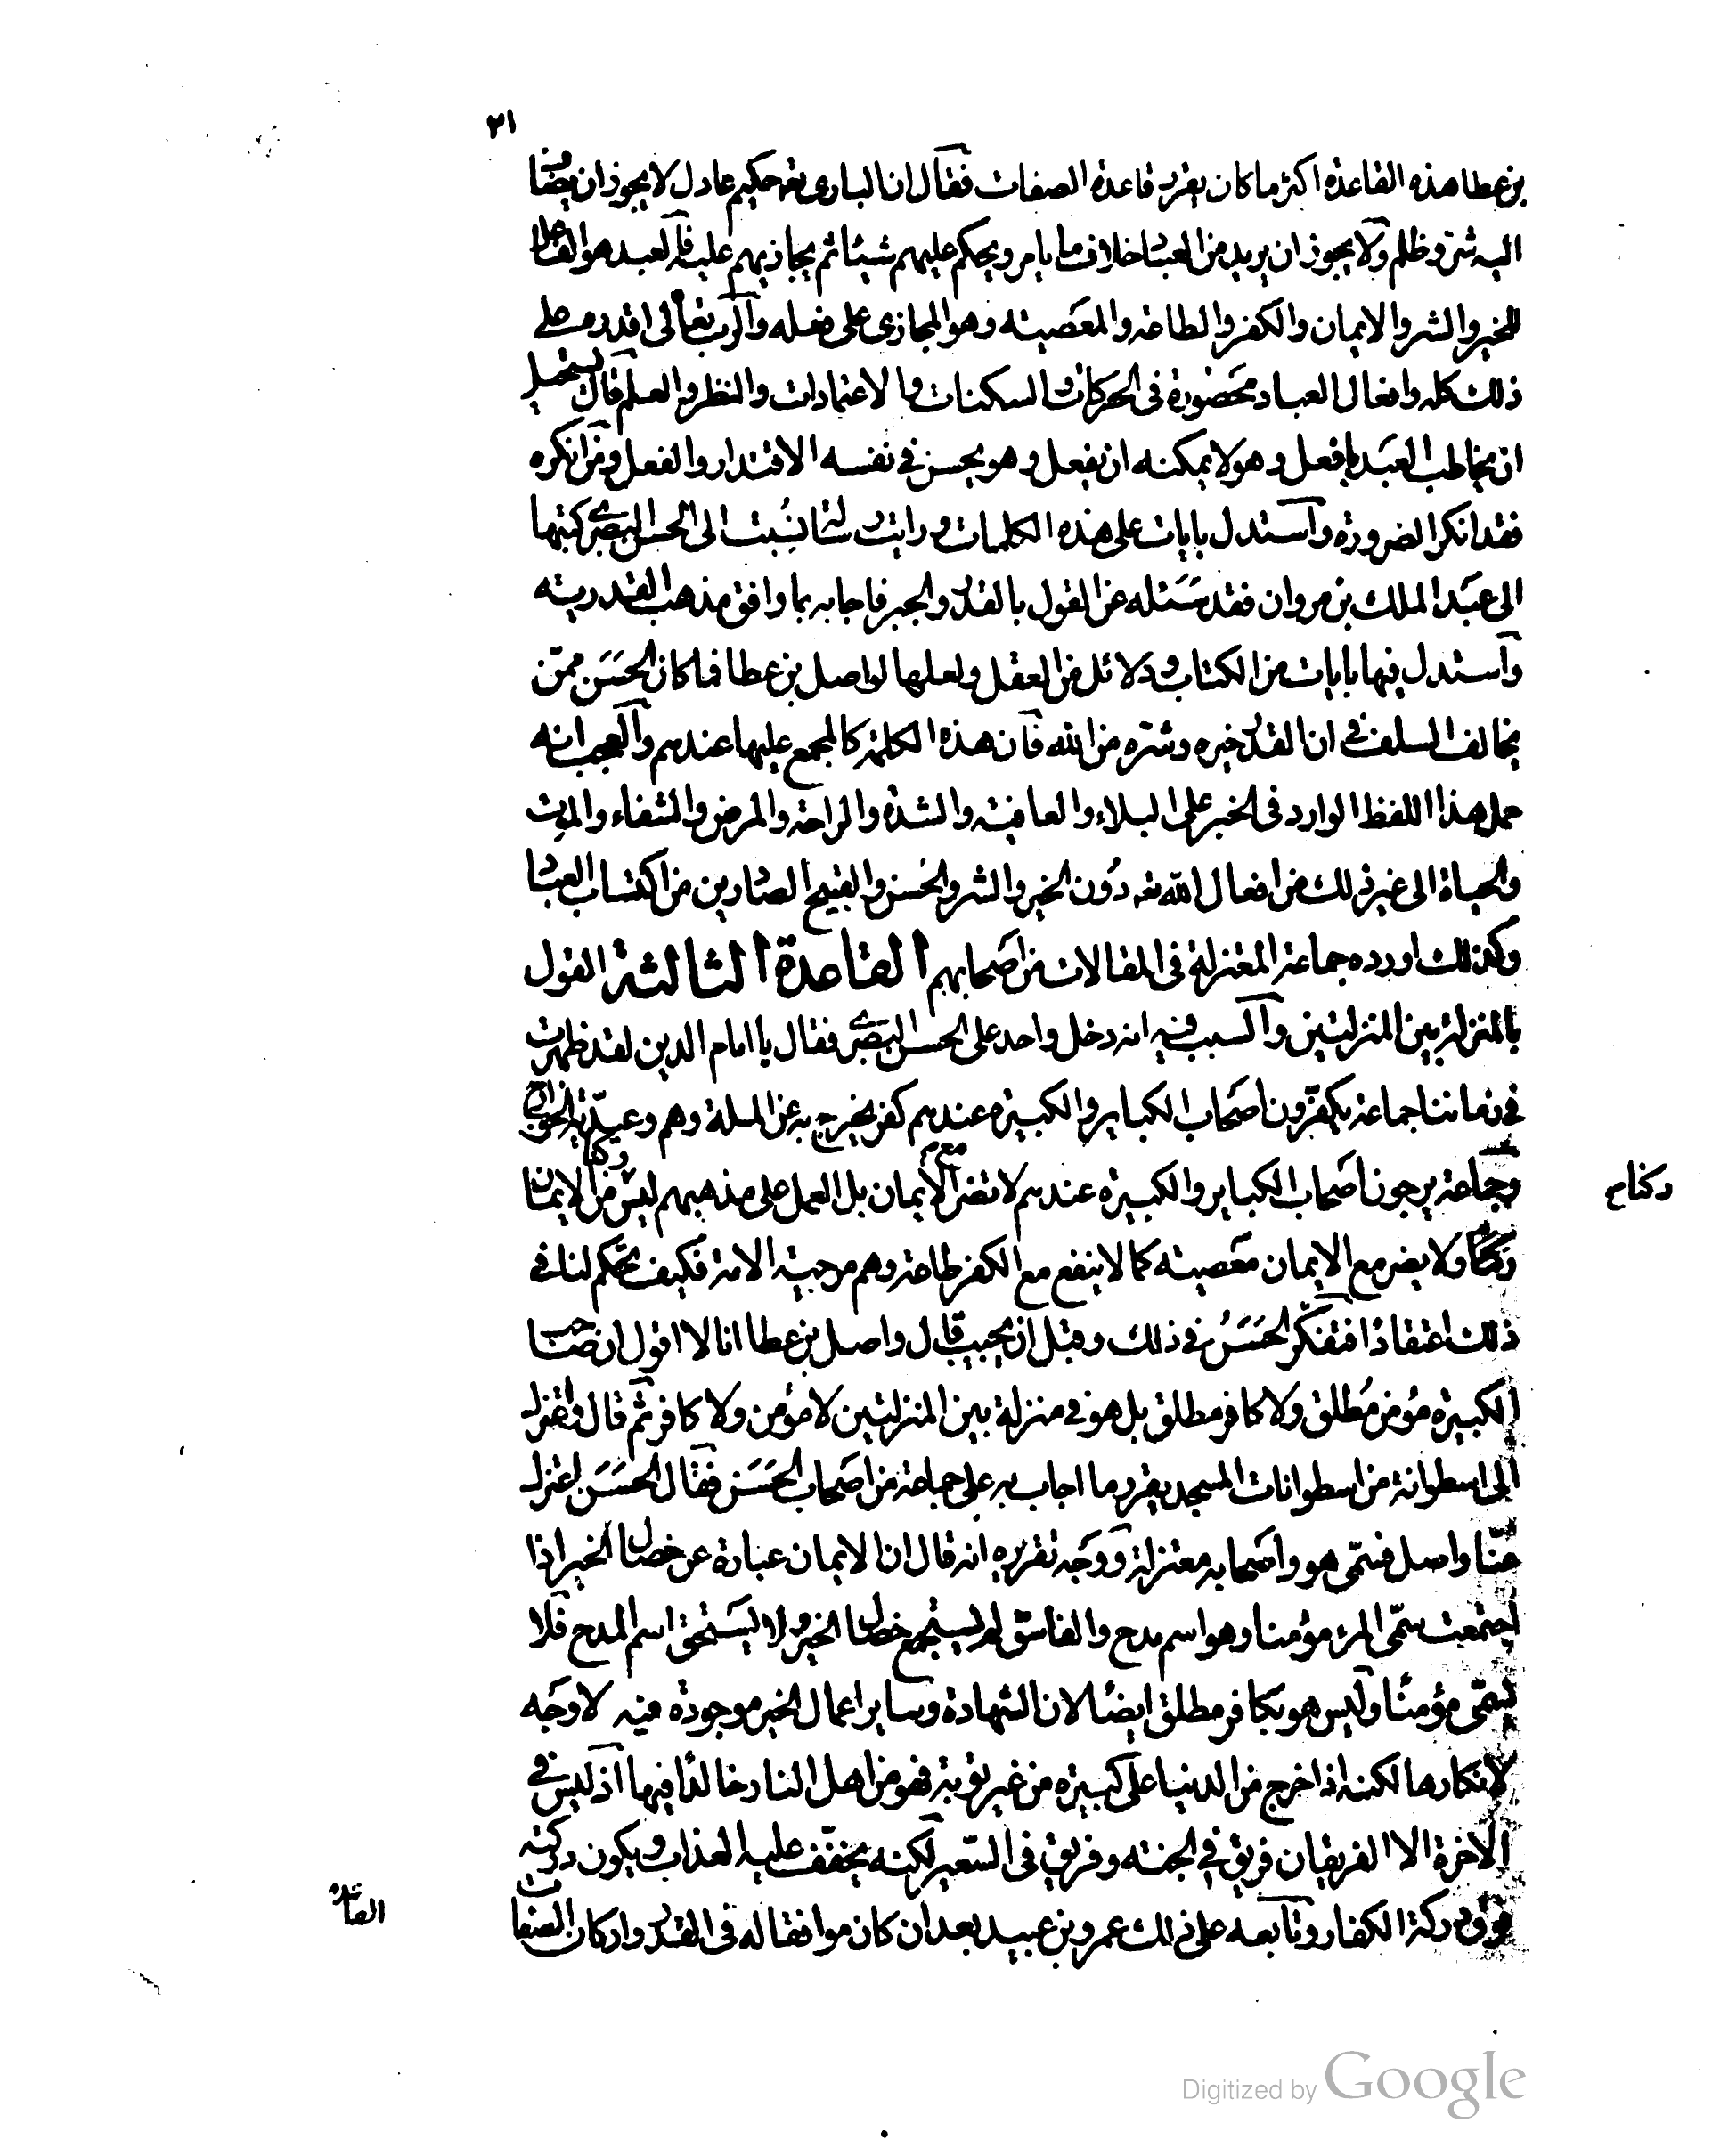 ٢١
بن عطا هذه القاعدة اكثر ما كان يقرر قاعدة الصفات فقال ان الباري تعه حكيم عادل لا يجوز ان يضاف
اليه شر وظلم ولا يجوز ان يريد من العباد خلاف ما يامر ويحكم عليهم شيئا ثم يجازيهم عليه فالعبد هو الفاعل
للخير والشر والايمان والكفر والطاعة والمعصية وهو المجازى على فعله والرب تعالى اقدره على
ذلك كله وافعال العباد محصورة فى الحركات والسكنات والاعتمادات والنظر والعلم قال يستحيل
ان يخاطب العبد بافعل وهو لا يمكنه ان يفعل وهو يحس في نفسه الاقتدار والفعل ومن انكره
فقد انكر الضرورة واستدل بايات على هذه الكلمات ورايت رسالة نسبت الى الحسن البصرى كتبها
الى عبد الملك بن مروان فقد سئله عن القول بالقدر والجبر فاجابه بما وافق مذهب القدرية
واستدل فيها بايات من الكتاب ودلائل من العقل ولعلها لواصل بن عطا فما كان الحسن ممن
يخالف السلف في ان القدر خيره وشره من الله فان هذه الكلمة كالمجمع عليها عندهم والعجب انه
حمل هذا اللفظ الوارد فى الخبر على البلاء والعافية والشدة والراحة والمرض والشفاء والموت
والحياة الى غير ذلك من افعال الله تعه دون الخير والشر والحسن والقبيح الصادرين من اكتساب العباد
وكذلك اورده جماعة المعتزلة فى المقالات من اصحابهم القاعدة الثالثة القول
بالمنزلة بين المنزلتين والسبب فيه انه دخل واحد على الحسن البصرى فقال يا امام الدين لقد ظهرت
في زماننا جماعة يكفرون اصحاب الكباير والكبيرة عندهم كفر يخرج به عن الملة وهم وعيدية الخوارج
وجماعة يرجون اصحاب الكباير والكبيرة عندهم لا تضر مع الايمان بل العمل على مذهبهم ليس من الايمان
ركنا ولا يضر مع الايمان معصية كما لا ينفع مع الكفر طاعة وهم مرجية الامة فكيف تحكم لنا في
ذلك اعتقادا فتفكر الحسن في ذلك وقبل ان يجيب قال واصل بن عطا انا لا اقول ان صاحب
الكبيرة مؤمن مطلق ولا كافر مطلق بل هو في منزلة بين المنزلتين لا مؤمن ولا كافر ثم قال واعتزل
الى اسطوانة من اسطوانات المسجد يقرر ما اجاب به على جماعة من اصحاب الحسن فقال الحسن اعتزل
عنا واصل فسمى هو واصحابه معتزلة ووجه تقريره انه قال ان الايمان عبارة عن خصال الخير اذا
اجتمعت سمى المرء مؤمنا وهو اسم مدح والفاسق لم يستجمع خصال الخير ولا يستحق اسم المدح فلا
يسمى مؤمنا وليس هو بكافر مطلق ايضا لان الشهادة وساير اعمال الخير موجودة فيه لا وجه
لانكارها لكنه اذا خرج من الدنيا على كبيرة من غير توبة فهو من اهل النار خالدا فيها اذ ليس في
الاخرة الا الفريقان فريق في الجنة وفريق فى السعير لكنه يخفف عليه العذاب ويكون دركته
فوق دركة الكفار وتابعه على ذلك عمرو بن عبيد بعد ان كان موافقا له فى القدر وانكار الصفات
ركنا مع
القاعدة
Digitized by Google